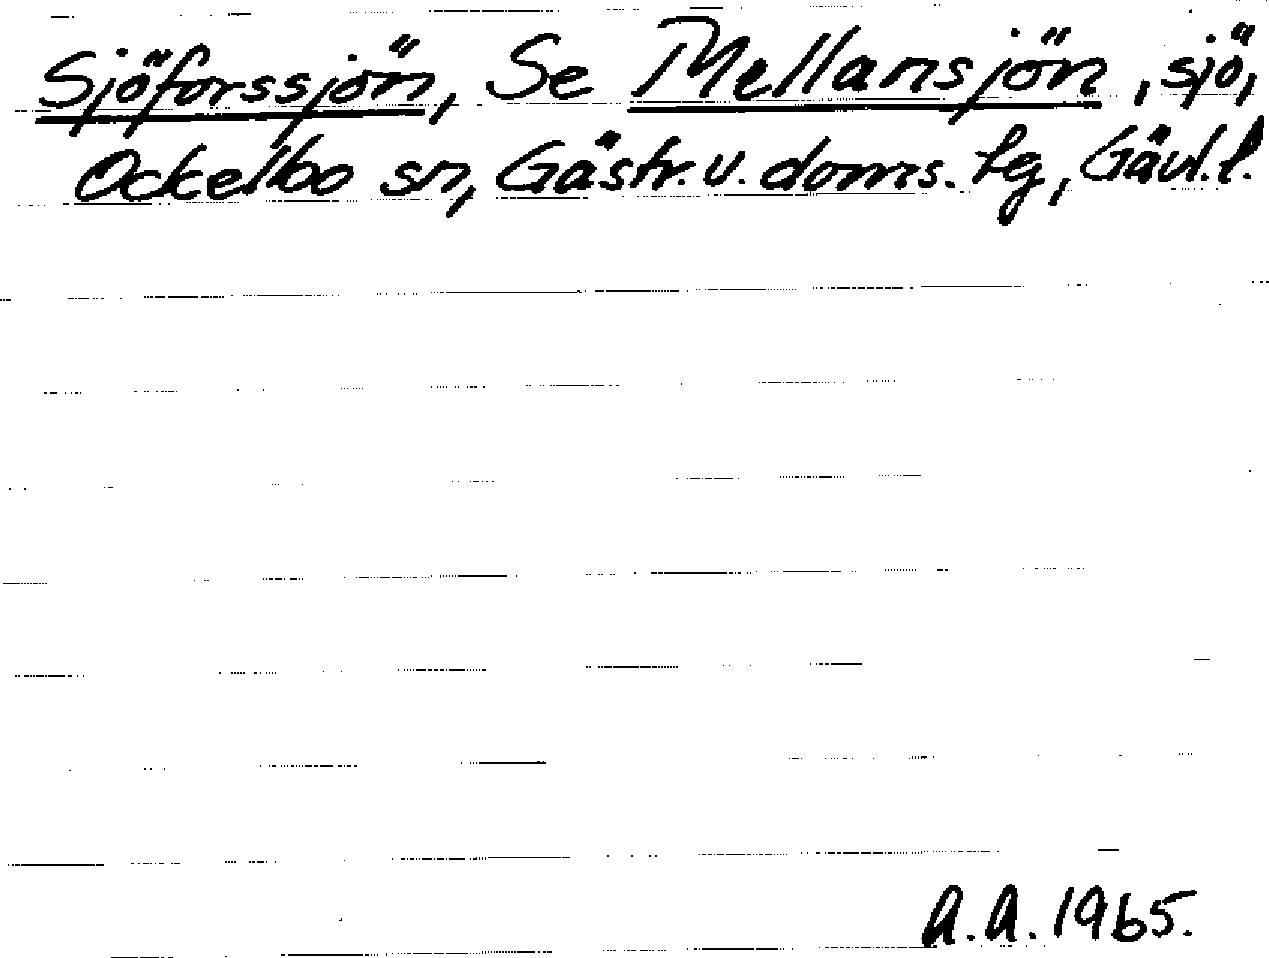 Sjöforssjön, Se Mellansjön, sjö,
Ockelbo sn, Gästr. v. doms. tg, Gävl. l.
A.A. 1965.